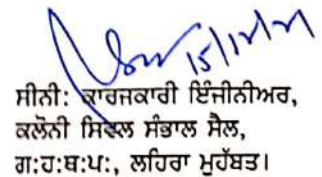 15/11/21
ਸੀਨੀ: ਕਾਰਜਕਾਰੀ ਇੰਜੀਨੀਅਰ,
ਕਲੋਨੀ ਸਿਵਲ ਸੰਭਾਲ ਸੈਲ,
ਗ:ਹ:ਥ:ਪ:, ਲਹਿਰਾ ਮੁਹੱਬਤ।